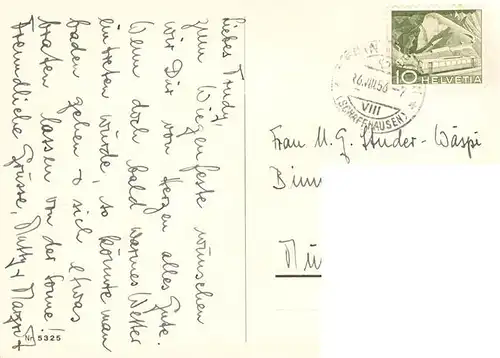 Liebes Trudy,
zum Wiegenfeste wünschen
wir Dir von Herzen alles Gute.
Wenn doch bald warmes Wetter
eintreten würde, so könnte man
baden gehen & sich etwas
braten lassen von der Sonne!
Freundliche Grüsse, Mutty & Margrit
Nr. 5325
10 HELVETIA
16.VIII.56
VIII
(SCHAFFHAUSEN)
Frau M. G. Studer-Wäspi